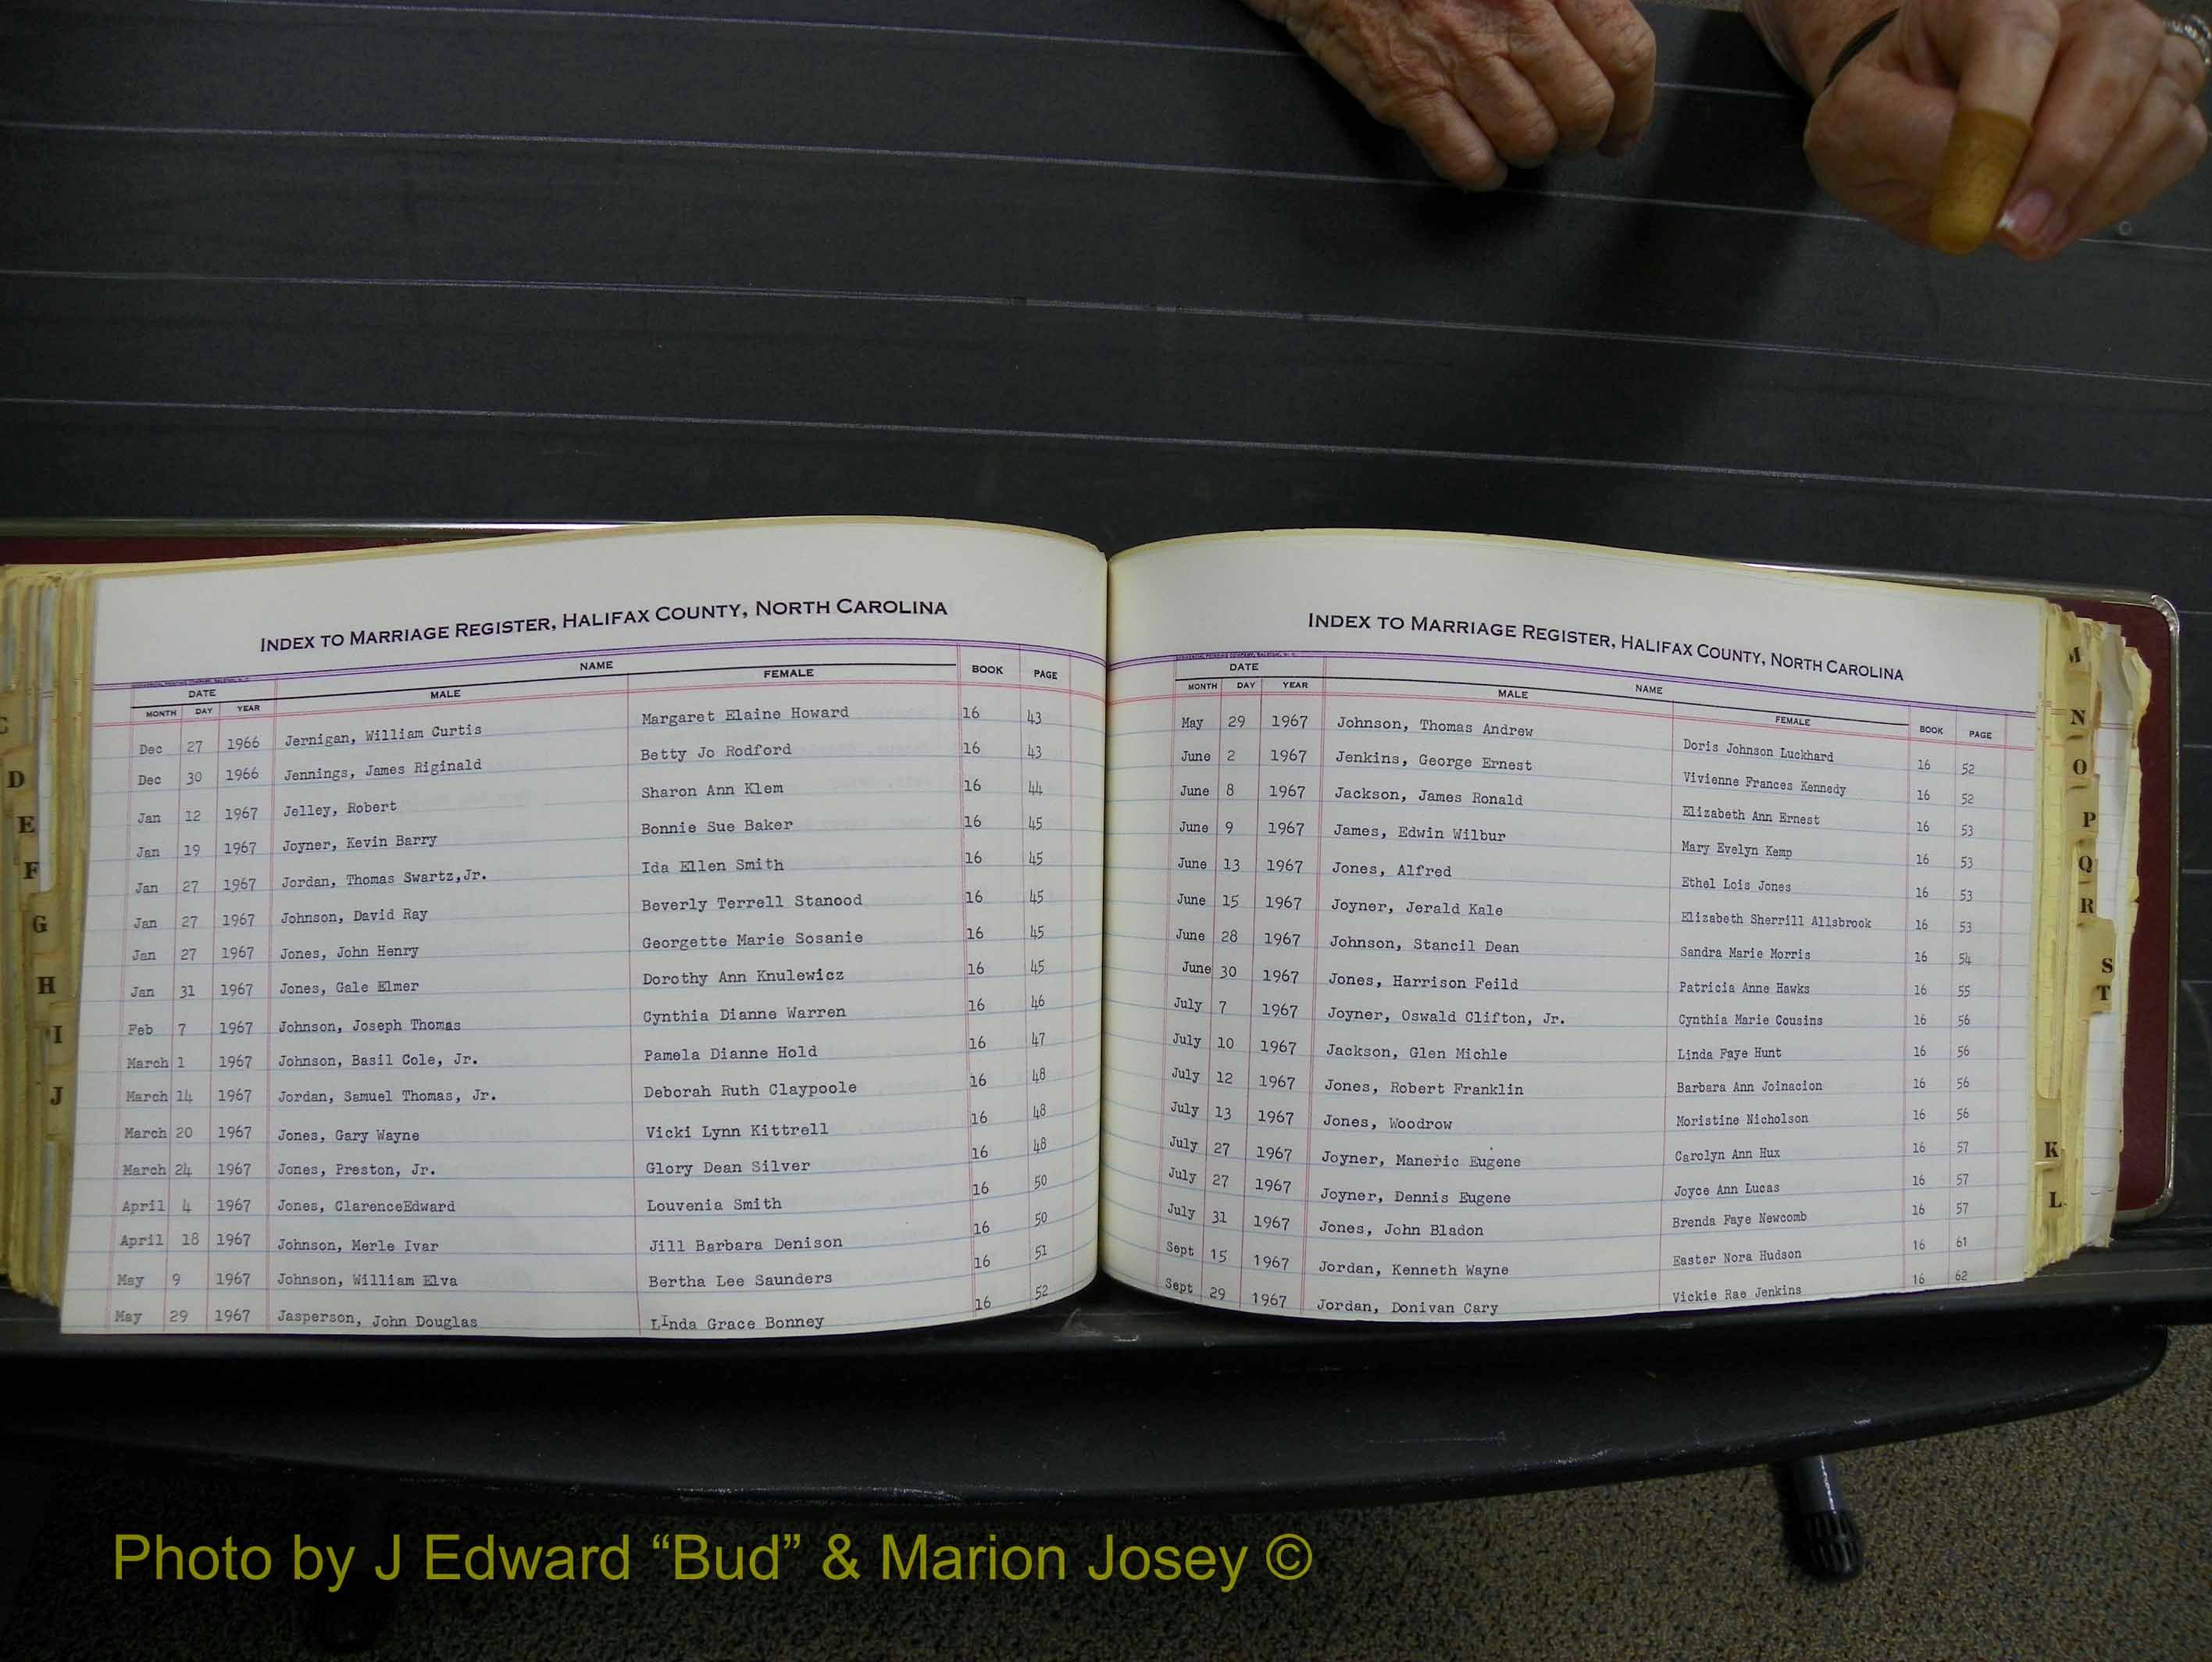 INDEX TO MARRIAGE REGISTER, HALIFAX COUNTY, NORTH CAROLINA
DATE NAME BOOK PAGE
MONTH DAY YEAR MALE FEMALE
Dec 27 1966 Jernigan, William Curtis Margaret Elaine Howard 16 43
Dec 30 1966 Jennings, James Riginald Betty Jo Rodford 16 43
Jan 12 1967 Jelley, Robert Sharon Ann Klem 16 44
Jan 19 1967 Joyner, Kevin Barry Bonnie Sue Baker 16 45
Jan 27 1967 Jordan, Thomas Swartz,Jr. Ida Ellen Smith 16 45
Jan 27 1967 Johnson, David Ray Beverly Terrell Stanood 16 45
Jan 27 1967 Jones, John Henry Georgette Marie Sosanie 16 45
Jan 31 1967 Jones, Gale Elmer Dorothy Ann Knulewicz 16 45
Feb 7 1967 Johnson, Joseph Thomas Cynthia Dianne Warren 16 46
March 1 1967 Johnson, Basil Cole, Jr. Pamela Dianne Hold 16 47
March 14 1967 Jordan, Samuel Thomas, Jr. Deborah Ruth Claypoole 16 48
March 20 1967 Jones, Gary Wayne Vicki Lynn Kittrell 16 48
March 24 1967 Jones, Preston, Jr. Glory Dean Silver 16 48
April 4 1967 Jones, ClarenceEdward Louvenia Smith 16 50
April 18 1967 Johnson, Merle Ivar Jill Barbara Denison 16 50
May 9 1967 Johnson, William Elva Bertha Lee Saunders 16 51
May 29 1967 Jasperson, John Douglas LInda Grace Bonney 16 52
INDEX TO MARRIAGE REGISTER, HALIFAX COUNTY, NORTH CAROLINA
DATE NAME BOOK PAGE
MONTH DAY YEAR MALE FEMALE
May 29 1967 Johnson, Thomas Andrew Doris Johnson Luckhard 16 52
June 2 1967 Jenkins, George Ernest Vivienne Frances Kennedy 16 52
June 8 1967 Jackson, James Ronald Elizabeth Ann Ernest 16 53
June 9 1967 James, Edwin Wilbur Mary Evelyn Kemp 16 53
June 13 1967 Jones, Alfred Ethel Lois Jones 16 53
June 15 1967 Joyner, Jerald Kale Elizabeth Sherrill Allsbrook 16 53
June 28 1967 Johnson, Stancil Dean Sandra Marie Morris 16 54
June 30 1967 Jones, Harrison Feild Patricia Anne Hawks 16 55
July 7 1967 Joyner, Oswald Clifton, Jr. Cynthia Marie Cousins 16 56
July 10 1967 Jackson, Glen Michle Linda Faye Hunt 16 56
July 12 1967 Jones, Robert Franklin Barbara Ann Joinacion 16 56
July 13 1967 Jones, Woodrow Moristine Nicholson 16 56
July 27 1967 Joyner, Maneric Eugene Carolyn Ann Hux 16 57
July 27 1967 Joyner, Dennis Eugene Joyce Ann Lucas 16 57
July 31 1967 Jones, John Bladon Brenda Faye Newcomb 16 57
Sept 15 1967 Jordan, Kenneth Wayne Easter Nora Hudson 16 61
Sept 29 1967 Jordan, Donivan Cary Vickie Rae Jenkins 16 62
D
E
F
G
H
I
J
M
N
O
P
Q
R
S
T
K
L
Photo by J Edward “Bud” & Marion Josey ©